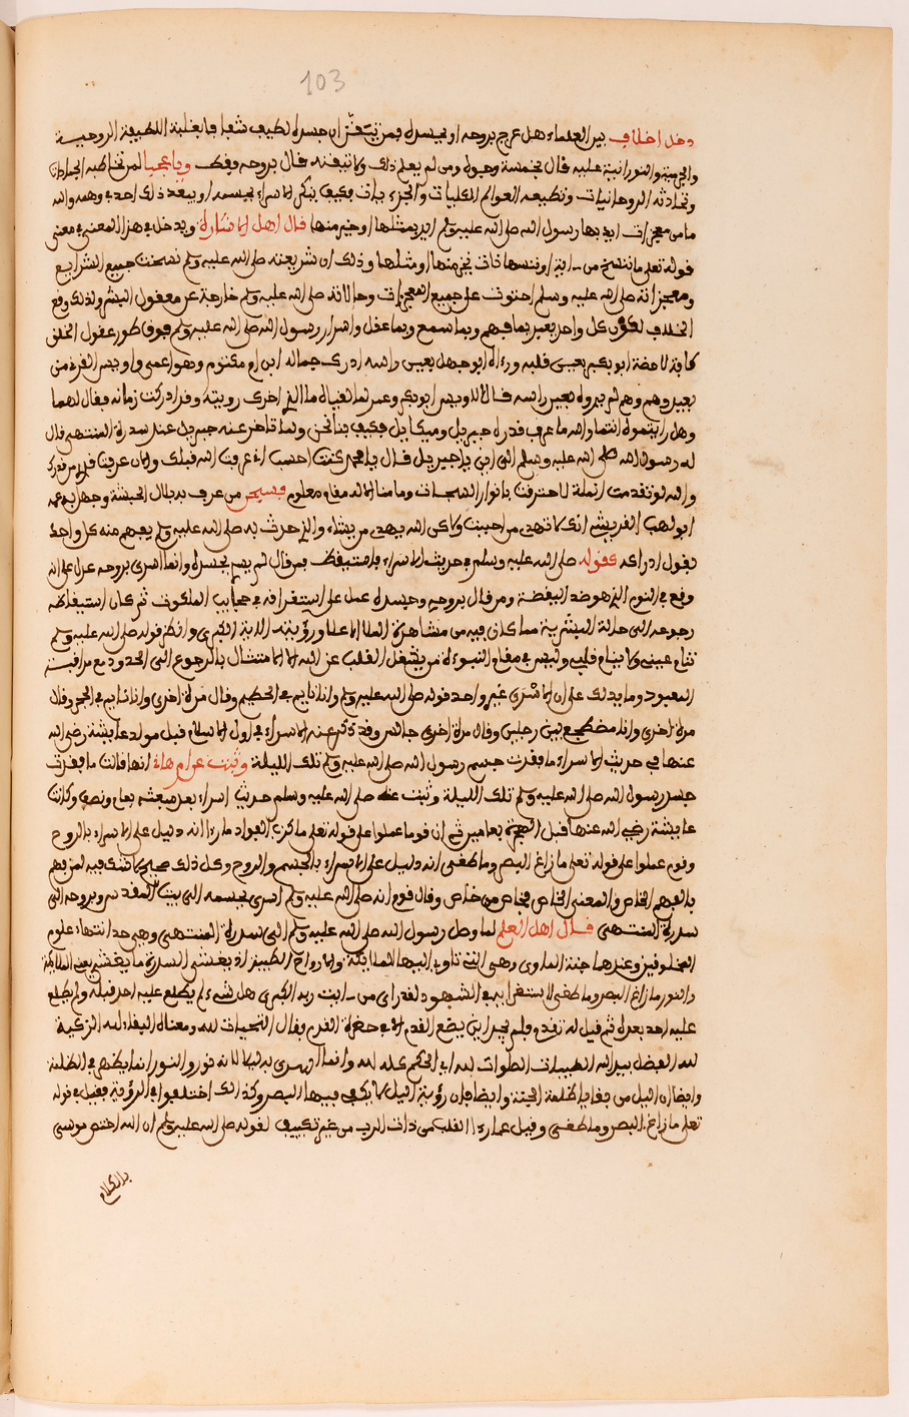 103
وهل اختلاف بين العلماء هل عرج بروحه او بجسده فمن تيقّن ان جسده لطيف شفاف غلبة اللطيفة الروحية
والنورانية عليه قال بجسمه وجوده ومن لم يعلم ذلك ولا تيقنه قال بروحه فقط ويا عجبا لمن تخاطبه الجمادات
وتحادثه الروحانيات وتطيعه العوالم الكليات والجزءيات فكيف ينكر الاسراء بجسمه او يبعد ذلك احد في وهمه والله
ما من معجزات اتى بها رسول الله صلى الله عليه وسلم بمثلها او خير منها قال اهل الاشارة ويدخل في هذا المعنى معنى
قوله تعلى ما ننسخ من ءاية او ننسها نات بخير منها او مثلها وذلك ان شريعته صلى الله عليه وسلم نسخت جميع الشرايع
ومعجزاته صلى الله عليه وسلم احتوت على جميع المعجزات وحالاته صلى الله عليه وسلم خارجة عن معقول البشر ولذلك وقع
الخلاف لكون كل واحد يعبر بما فهم وبما سمع وبما عقل واسرار رسول الله صلى الله عليه وسلم فوق طور عقول الخلق
كافة لاحضه ابو بكر بعين قلبه ورءاه ابو جهل بعين راسه ادرك جماله ابن ام مكتوم وهو اعمى واويس القرني من
بعيد وهم لم يروه بعين راسه
وهل رايتموه انتما والله ما عرف قدره جبريل وميكايل فكيف بنا نحن ولما تاخر عنه جبريل عند سدرة المنتهى قال
له رسول الله صلى الله عليه وسلم الى اين يا جبريل فقال يا محمد كنت احسب اني عرفت الله قبلك والان عرفت
والله لو تقدمت انملة لاحترقت بانوار السبحات وما منا الا له مقام معلوم فسبحن من عرف به بلال الحبشة وجهل به عمه
ابو لهب القرشي انك لا تهدي من احببت ولاكن الله يهدي من يشاء والذي حدث به صلى الله عليه وسلم يفهم منه كل واحد
بقدر ادراكه كقوله صلى الله عليه وسلم في حديث الاسراء فاستيقظت فمن قال لم يسر بجسده وانما اسري بروحه عول على انه
وقع في النوم الذي هو ضد اليقضة ومن قال بروحه وجسده عمل على استغراقه في عجايب الملكوت ثم كان استيقاظه
رجوعه الى حالة البشرية مما كان فيه من مشاهدة الملا الاعلا ورؤيته الاية الكبرى وانظر قوله صلى الله عليه وسلم
تنام عيني ولا ينام قلبي وليس في مقام النبوءة من يشغل القلب عن الله الا الامتثال بالرجوع الى الحدود مع مراقبة
المعبود ومما يدلك على ان الاسرى غير واحد قوله صلى الله عليه وسلم وانا نايم في الحطيم وقال مرة اخرى وانا نايم في الحجر وقال
مرة اخرى وانا مضطجع بين رجلين وقال مرة اخرى جالس وقد ذكر عنه الاسراء في اول الاسلام قبل مولد عايشة رضي الله
عنها في حديث الاسراء ما فقدت جسم رسول الله صلى الله عليه وسلم تلك الليلة وثبت عن ام هانئ انها قالت ما فقدت
جسد رسول الله صلى الله عليه وسلم تلك الليلة وثبت عنه صلى الله عليه وسلم حديث اسراء بعد مبعثه بعام ونصف وكانت
عايشة رضي الله عنها قبل الهجرة بعامين ثم ان قوما عملوا على قوله تعلى ما كذب الفؤاد ما رءا انه دليل على الاسراء بالروح
وقوم عملوا على قوله تعلى ما زاغ البصر وما طغى انه دليل على الاسراء بالجسم والروح وكل ذلك صحيح لا شك فيه لمن فهم
بالفهم الخاص والمعنى الخاص فخاص من خاص وقال قوم انه صلى الله عليه وسلم اسري بجسمه الى بيت المقدس وبروحه الى
سدرة المنتهى قال اهل العلم لما وصل رسول الله صلى الله عليه وسلم الى سدرة المنتهى وهي حد انتهاء علوم
المخلوقين وعندها جنة الماوى وهي التي تاوي اليها الملايكة والارواح الطيبة اذ يغشى السدرة ما يغشى يعني الملايكة
والنور ما زاغ البصر وما طغى لاستغراقه في الشهود لقد راى من ءايت ربه الكبرى هل شيء لم يطلع عليه احد قبله ولم يطلع
عليه احد بعده ثم قيل له تقدم فلم يجد اين يضع القدم الا في حضرة القدم فقال التحيات لله ومعناه البقاء لله الزكية
لله الفضل بيد الله الطيبات الصلوات لله اي الحكم كله لله وانما اسري به ليلا لانه نور والنور انما يظهر في الظلمة
وايضا ان الليل من بقايا ظلمة الجنة وايضا فان رؤية الليل لا يكفي فيها البصر وكذلك اختلفوا في الرؤية فقيل في قوله
تعلى ما زاغ البصر وما طغى وقيل عماره االقلب من ذات الرب من غير تكييف لقوله صلى الله عليه وسلم ان الله اختص موسى
بالكلام